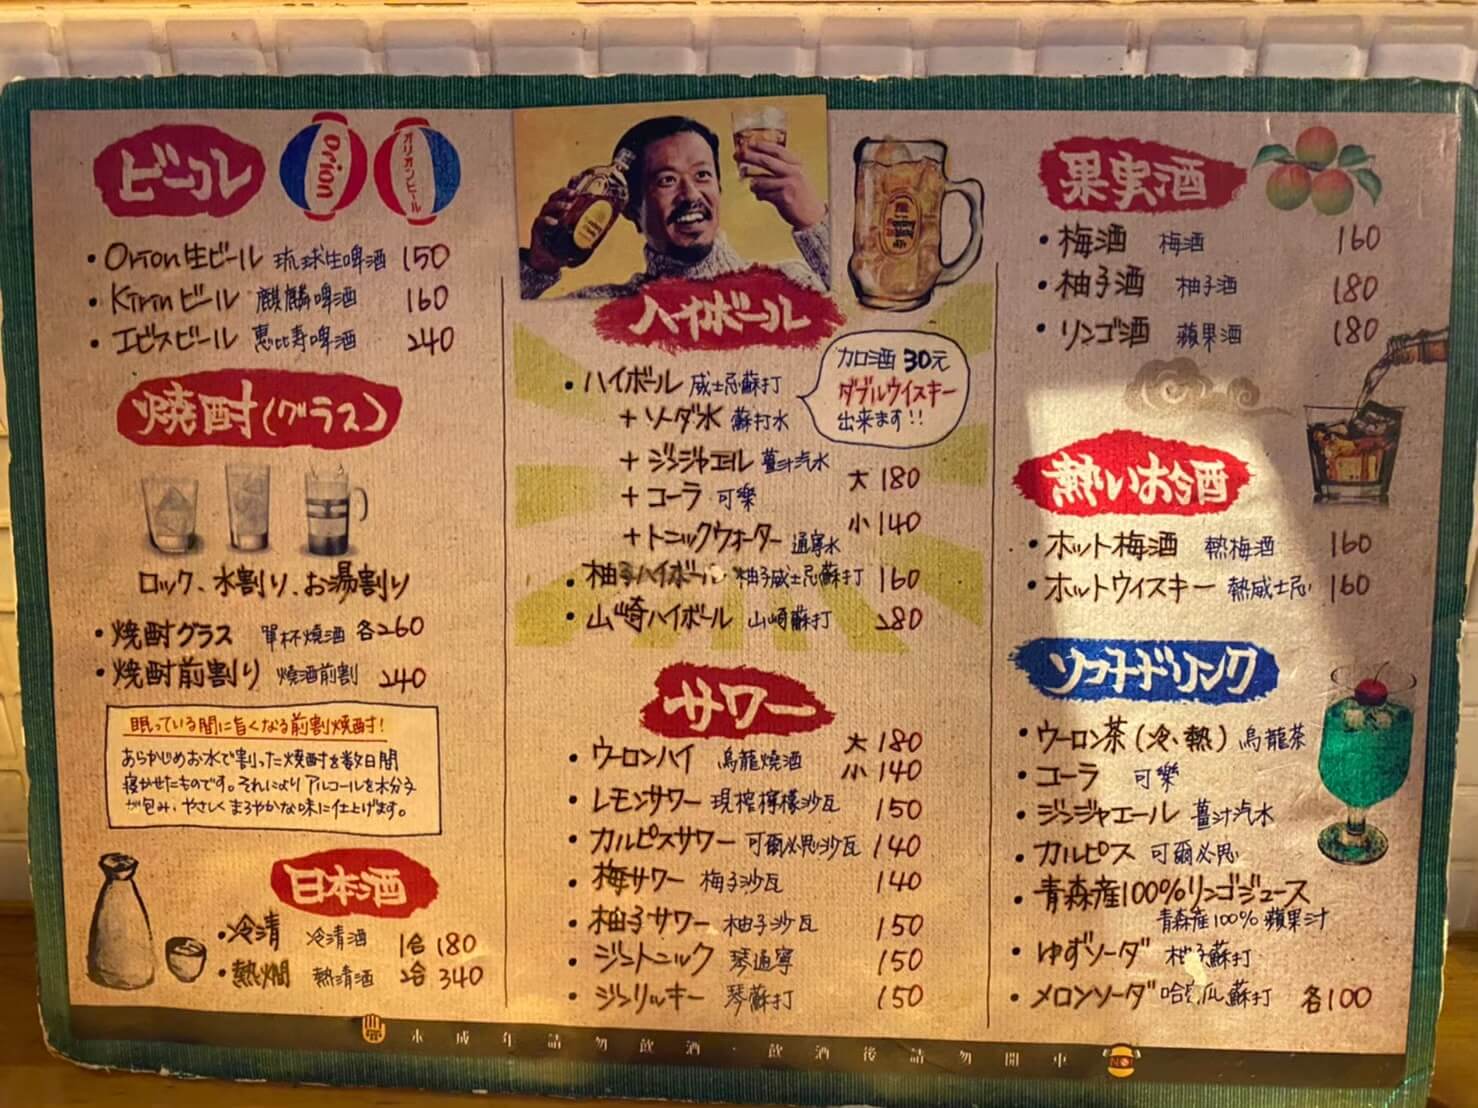 ビール
Orion
オリオンビール
・Orion生ビール 琉球生啤酒 150
・Kirinビール 麒麟啤酒 160
・エビスビール 惠比寿啤酒 240
焼酎(グラス)
ロック、水割り、お湯割り
・焼酎グラス 單杯燒酒 各260
・焼酎前割り 燒酒前割 240
眠っている間に旨くなる前割焼酎!
あらかじめお水で割った焼酎を数日間
寝かせたものです。それにより アルコールを水分子
が包み、やさしく まろやかな味に仕上げます。
日本酒
・冷清 冷清酒 1合 180
・熱燗 熱清酒 2合 340
ハイボール
加酒 30元
ダブルウイスキー
出来ます!!
・ハイボール 威士忌蘇打
+ソーダ水 蘇打水
+ジンジャエル 薑汁汽水
+コーラ 可樂
+トニックウォーター 通寧水
大 180
小 140
・柚子ハイボール 柚子威士忌蘇打 160
・山崎ハイボール 山崎蘇打 280
サワー
・ウーロンハイ 烏龍燒酒 大 180
小 140
・レモンサワー 現搾檸檬沙瓦 150
・カルピスサワー 可爾必思沙瓦 140
・梅サワー 梅子沙瓦 140
・柚子サワー 柚子沙瓦 150
・ジントニック 琴通寧 150
・ジンリッキー 琴蘇打 150
果実酒
・梅酒 梅酒 160
・柚子酒 柚子酒 180
・リンゴ酒 蘋果酒 180
熱いお酒
・ホット梅酒 熱梅酒 160
・ホットウィスキー 熱威士忌 160
ソフトドリンク
・ウーロン茶(冷、熱) 烏龍茶
・コーラ 可樂
・ジンジャエール 薑汁汽水
・カルピス 可爾必思
・青森産100%リンゴジュース
青森産100%蘋果汁
・ゆずソーダ 柚子蘇打
・メロンソーダ 哈密瓜蘇打 各100
未成年請勿飲酒・飲酒後請勿開車
NO